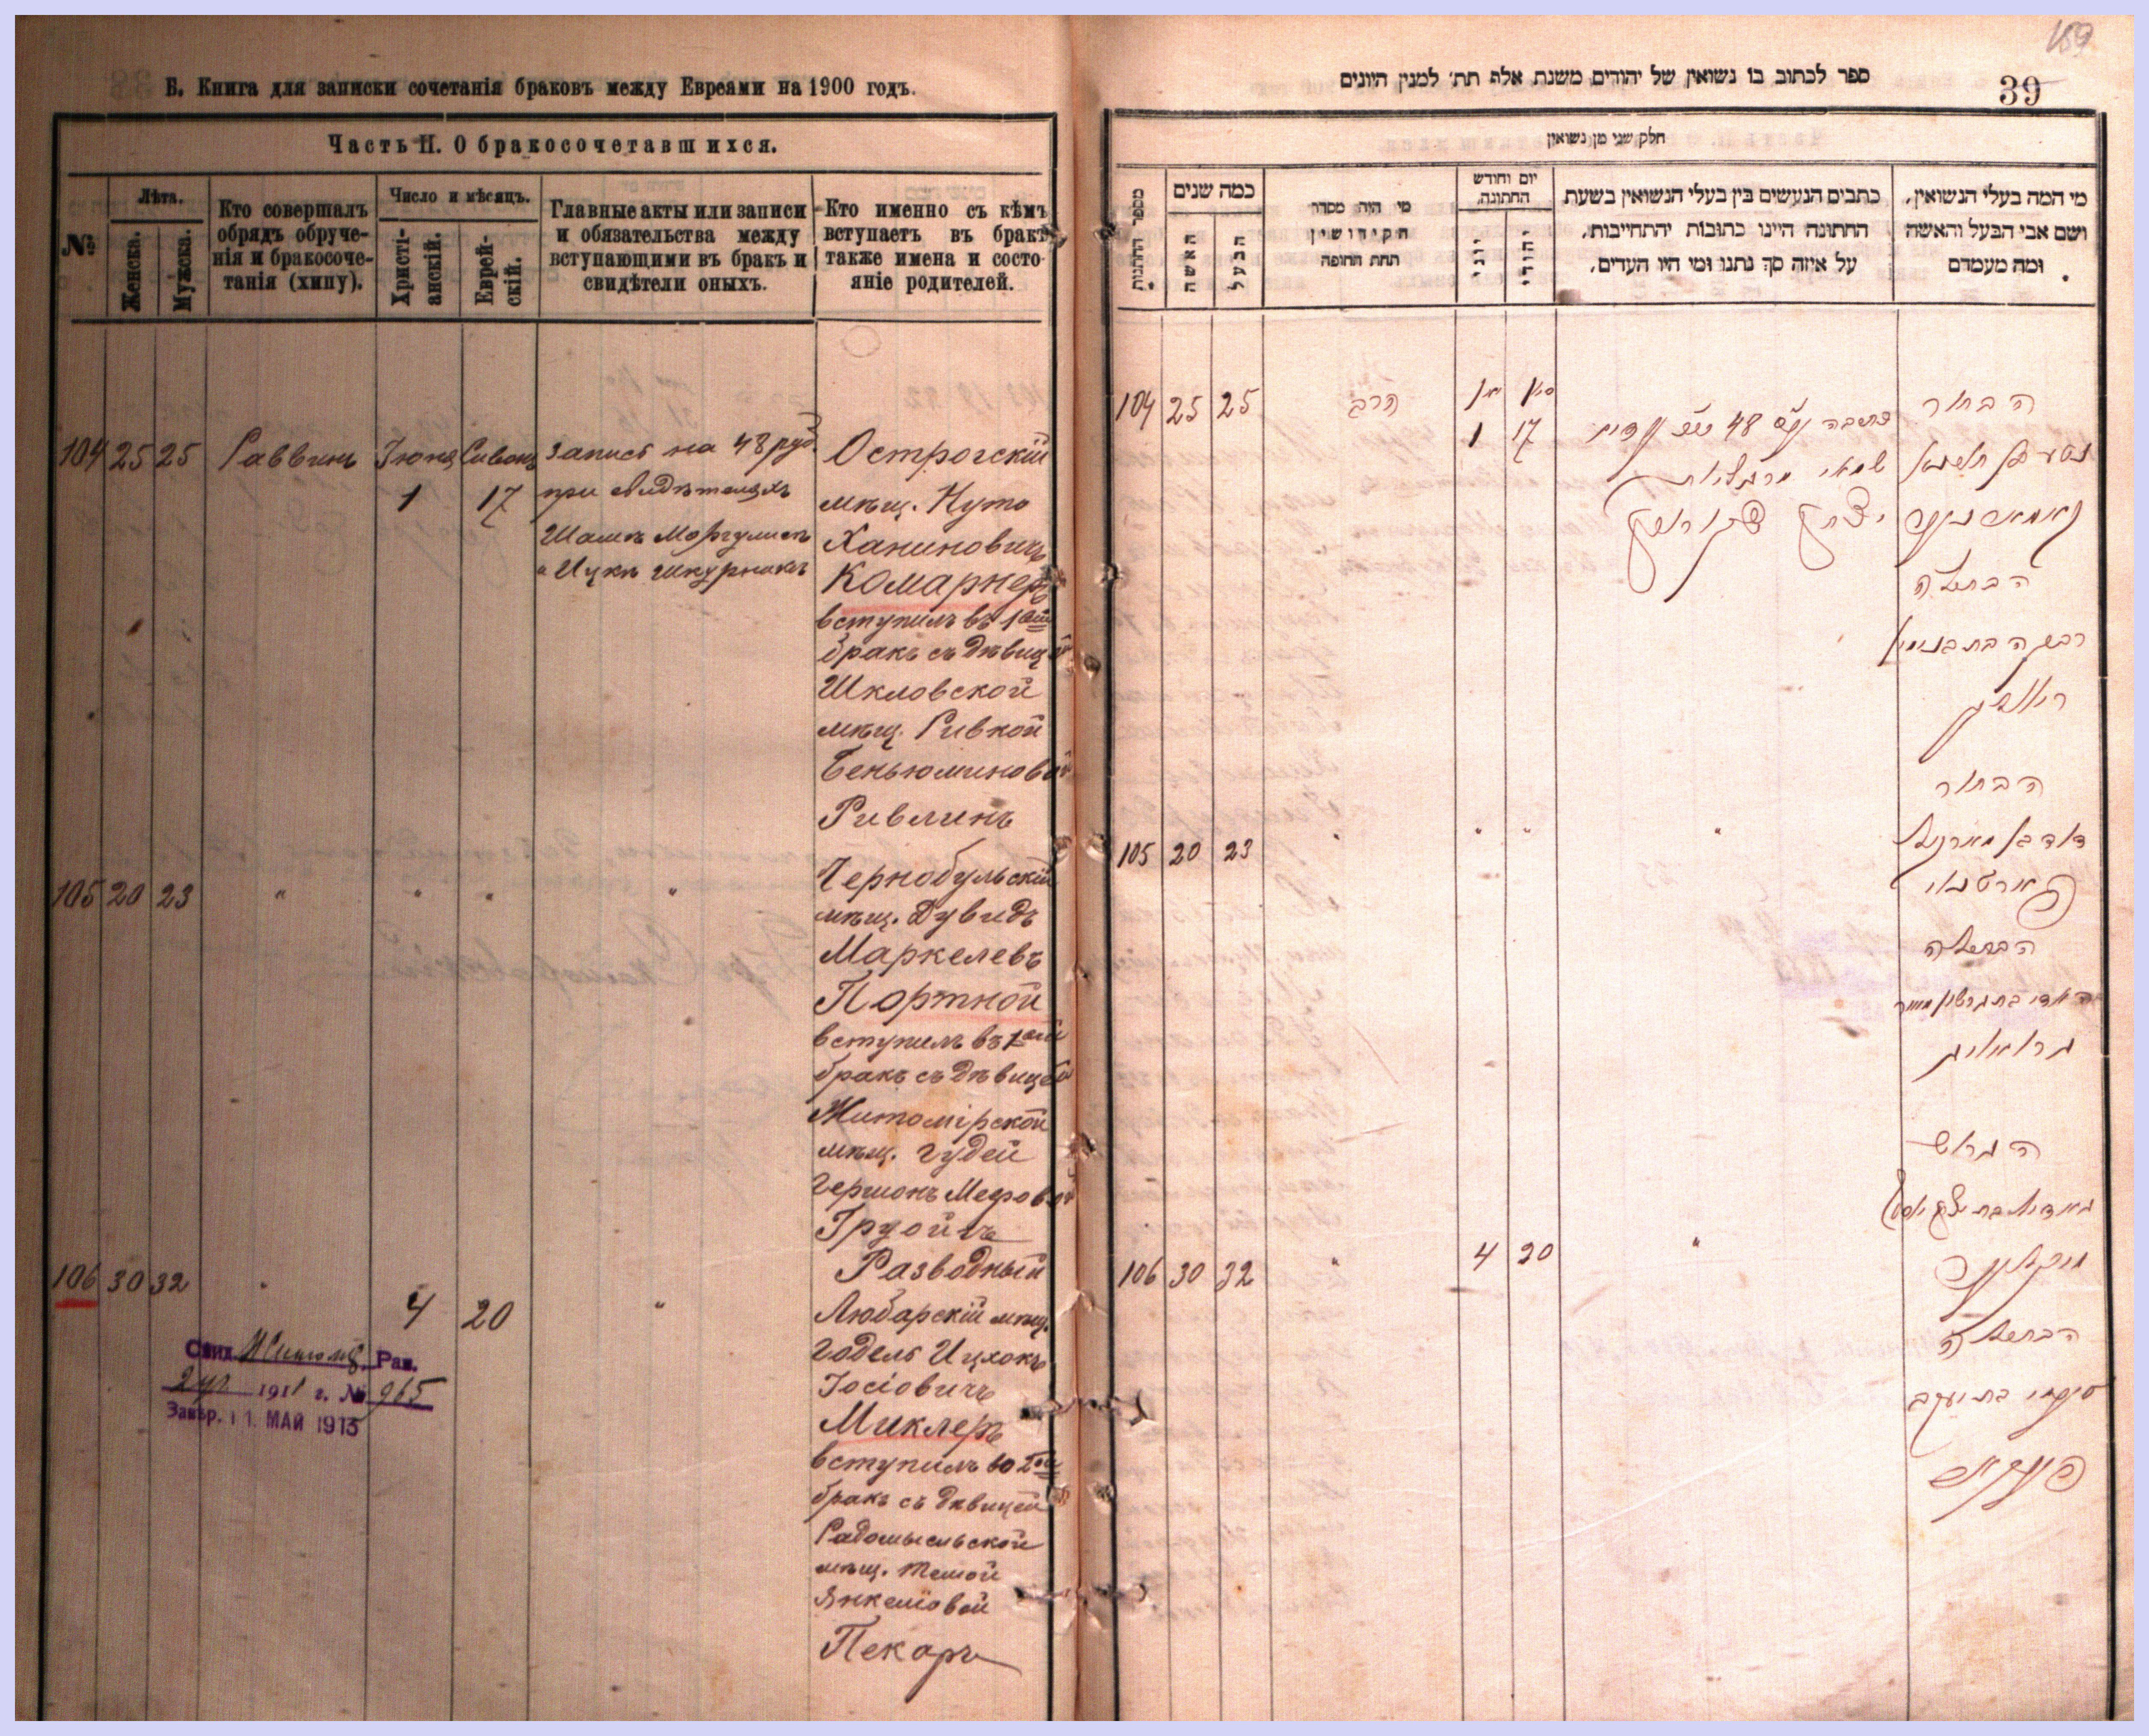 Б. Книга для записки сочетанія браковъ между Евреями на 1900 годъ.
Часть II. О бракосочетавшихся.
№
Лѣта.
Женска.
Мужска.
Кто совершалъ
обрядъ обруче-
нія и бракосоче-
танія (хипу).
Число и мѣсяцъ.
Христі-
анскій.
Еврей-
скій.
Главные акты или записи
и обязательства между
вступающими въ бракъ и
свидѣтели оныхъ.
Кто именно съ кѣмъ
вступаетъ въ бракъ
также имена и состо-
яніе родителей.
104 25 25 Раввинъ Іюня 1 Сивонъ 17
Запись на 48 руб.
при свидѣтеляхъ
Шамъ Моргулисъ
и Ицкъ Шкурникъ
Острогскій
мѣщ. Нута
Ханиновичъ
Комарнеръ
вступилъ въ 1ый
бракъ съ дѣвицей
Шкловской
мѣщ. Ривкой
Беньюминовой
Ривлинъ
105 20 23 " " " "
Чернобульскій
мѣщ. Дувидъ
Маркелевъ
Портной
вступилъ въ 1ый
бракъ съ дѣвицей
Житомірской
мѣщ. Гудей
Гершонъ Мееровой
106 30 32 " 4 20 "
Разводный
Любарскій мѣщ.
Годель Ицхокъ
Іосіовичъ
Миклеръ
вступилъ во 2ой
бракъ съ дѣвицей
Радомысльской
мѣщ. Темой
Янкеліовой
Пекаръ
Рав.
191 г. № 965
Завѣр. 11. МАЙ 1913
39
ספר לכתוב בו נשואין של יהודים משנת אלף תת׳ למנין היונים
חלק שני מן נשואין
מספר החתנות
כמה שנים
האשה
הבעל
מי היה מסדר
הקידושין
תחת החופה
יום וחודש
החתונה
יוני
יהודי
כתבים הנעשים בין בעלי הנשואין בשעת
החתונה היינו כתובות יהתחייבות,
על איזה סך נתנו ומי היו העדים,
מי המה בעלי הנשואין,
ושם אבי הבעל והאשה
ומה מעמדם
104 25 25 הרב יון 1 סיון 17
שמאי מרגליות
יצחק שקורניק
הבחור
קאמארנער
הבתולה
רבקה בת בנימין
ריוולין
105 20 23 " " " "
הבחור
דוד בן מארקיל
פארטנאי
הבתולה
106 30 32 " 4 20 "
הגרוש
מיקלער
הבתולה
בת יעקב
פיעקאר